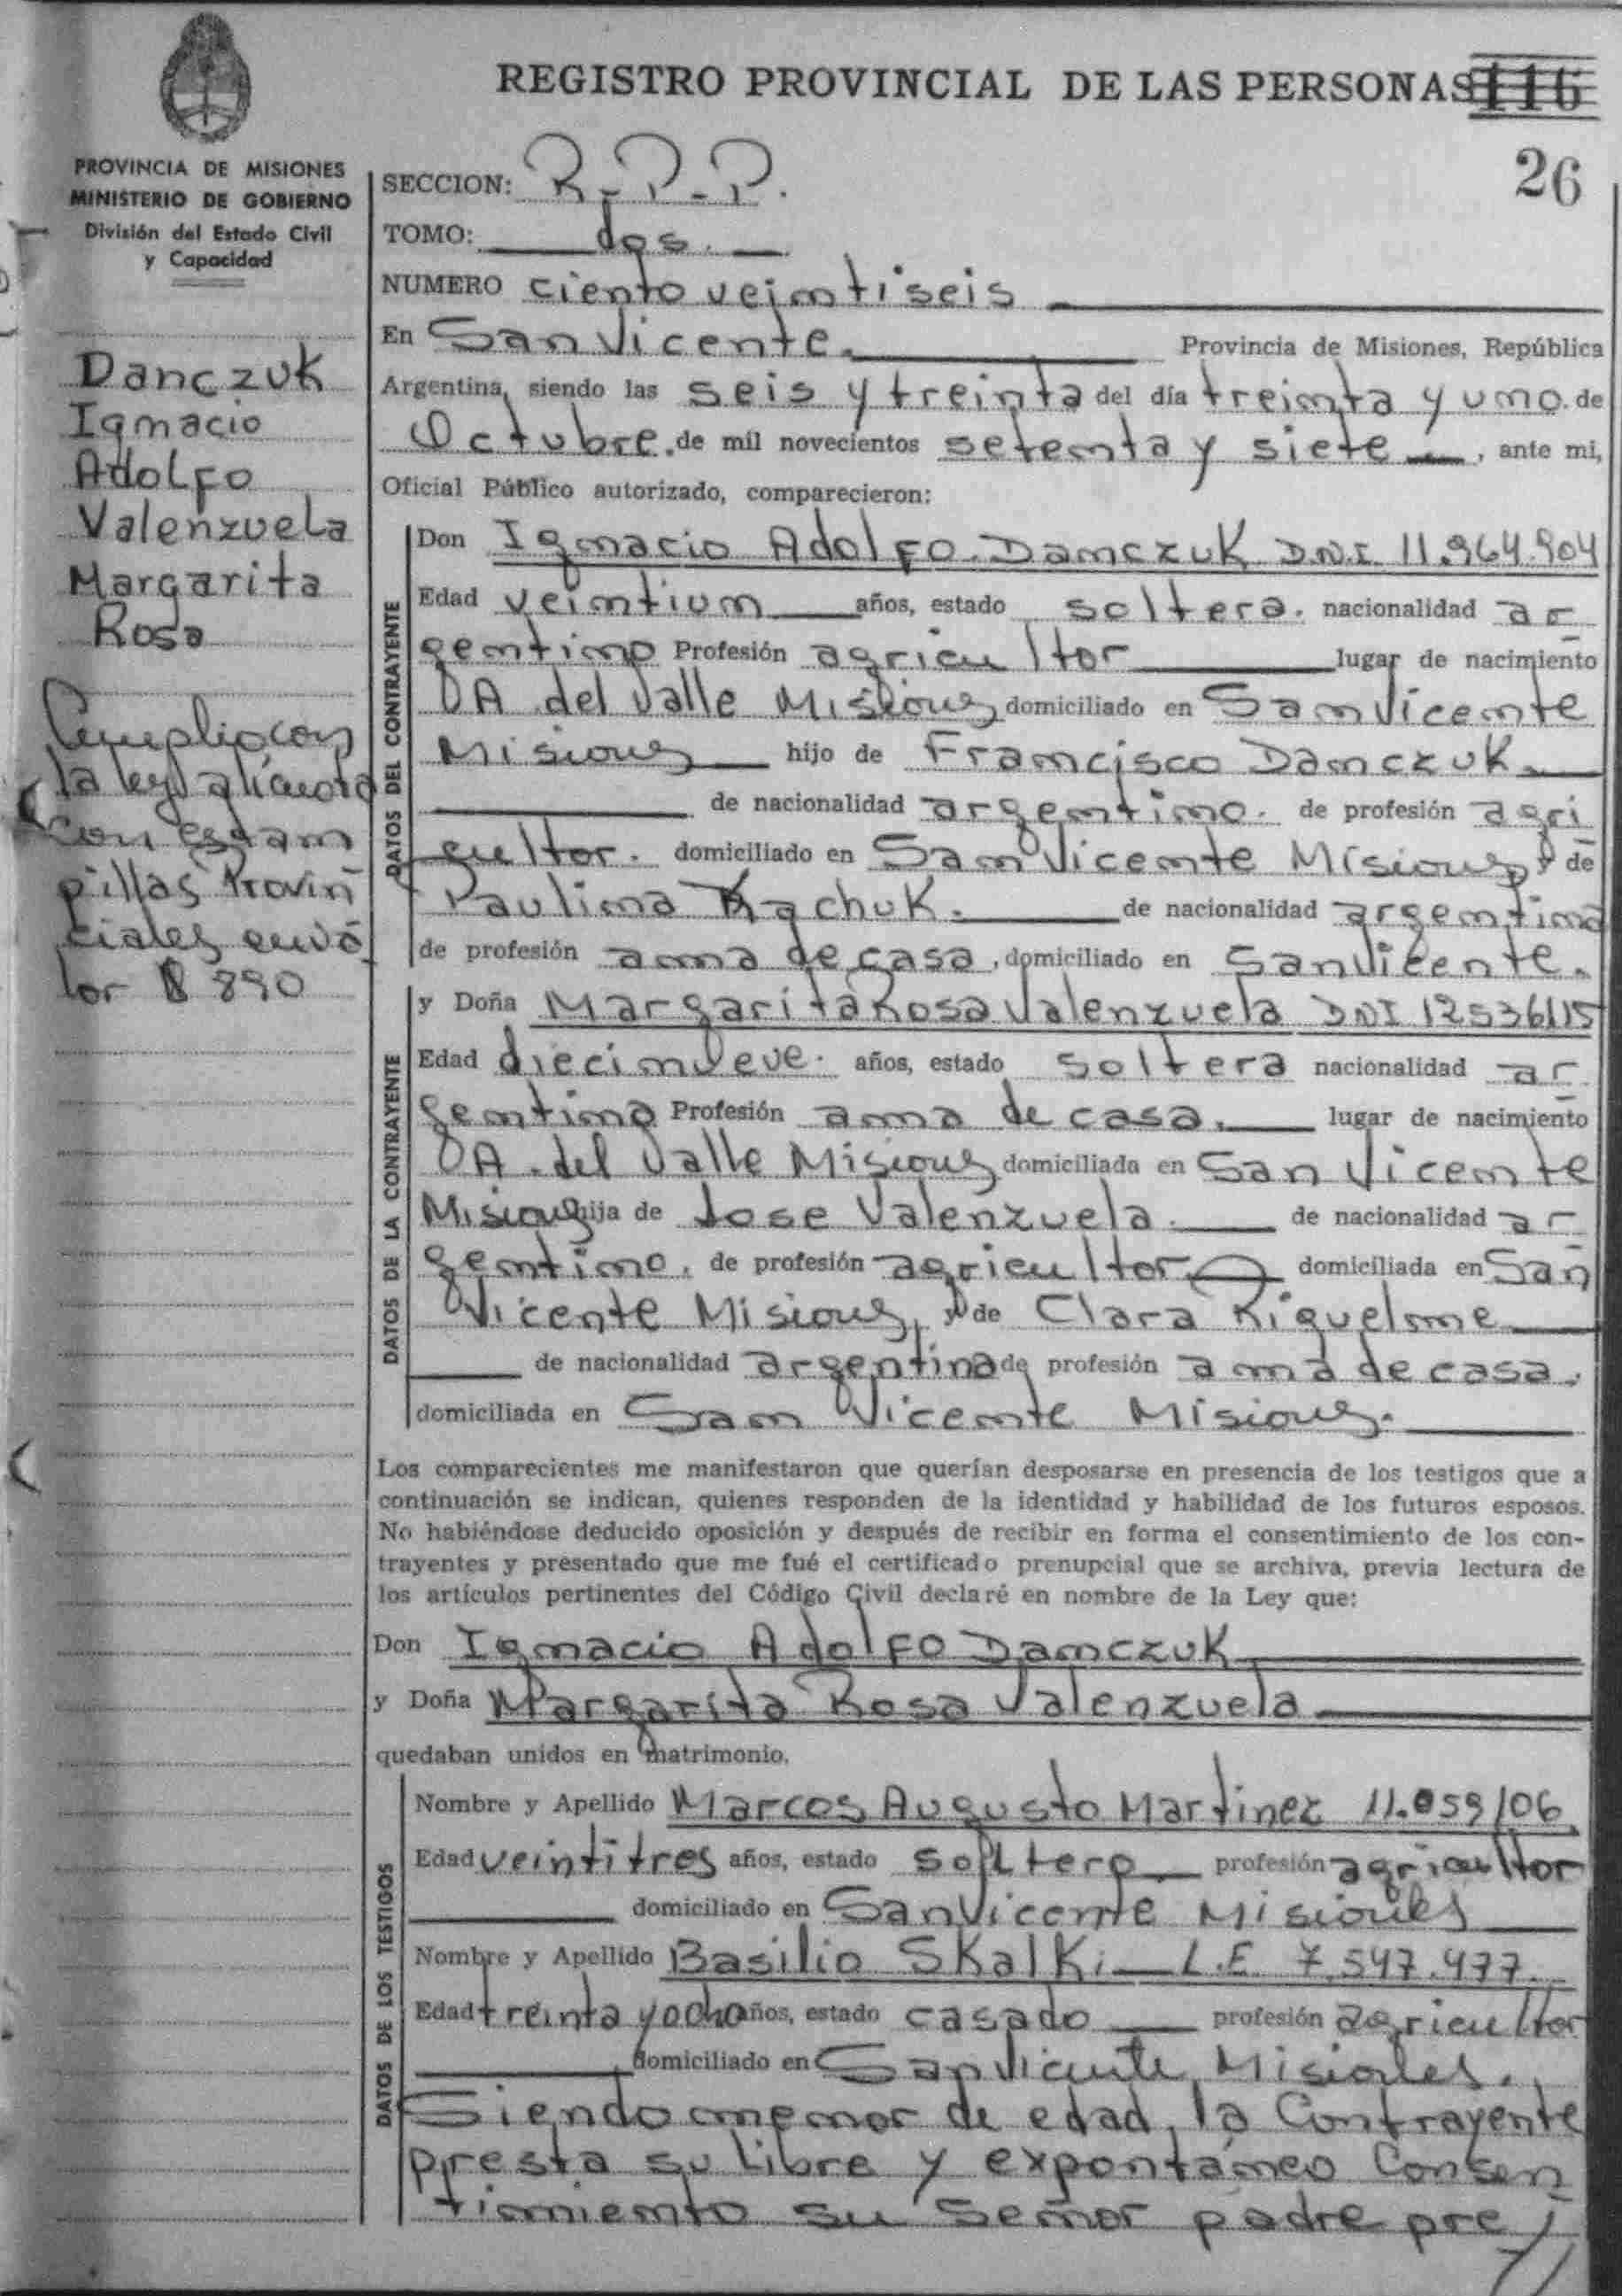 REGISTRO PROVINCIAL DE LAS PERSONAS 116
26
PROVINCIA DE MISIONES
MINISTERIO DE GOBIERNO
División del Estado Civil
y Capacidad
Danczuk
Ignacio
Adolfo
Valenzuela
Margarita
Rosa
Cumplio con
la ley alicuota
con estam
pillas Provin
ciales en va
lor $ 890
SECCION: R.P.P.
TOMO: dos.
NUMERO ciento veintiseis
En San Vicente. Provincia de Misiones, República
Argentina, siendo las seis y treinta del día treinta y uno de
Octubre. de mil novecientos setenta y siete, ante mi,
Oficial Público autorizado, comparecieron:
DATOS DEL CONTRAYENTE
Don Ignacio Adolfo Danczuk D.N.I. 11.964.904
Edad veintiun años, estado soltera. nacionalidad ar
gentino Profesión agricultor lugar de nacimiento
DA del Valle Misiones domiciliado en San Vicente
Misiones hijo de Francisco Danczuk
de nacionalidad argentino. de profesión agri
cultor. domiciliado en San Vicente Misiones y de
Paulina Kachuk. de nacionalidad argentina
de profesión ama de casa, domiciliado en San Vicente.
DATOS DE LA CONTRAYENTE
y Doña Margarita Rosa Valenzuela DNI 12536115
Edad diecinueve. años, estado soltera nacionalidad ar
gentina Profesión ama de casa. lugar de nacimiento
DA. del Valle Misiones domiciliada en San Vicente
Misiones hija de Jose Valenzuela. de nacionalidad ar
gentino, de profesión agricultor domiciliada en San
Vicente Misiones, y de Clara Riquelme
de nacionalidad argentina de profesión ama de casa.
domiciliada en San Vicente Misiones.
Los comparecientes me manifestaron que querían desposarse en presencia de los testigos que a
continuación se indican, quienes responden de la identidad y habilidad de los futuros esposos.
No habiéndose deducido oposición y después de recibir en forma el consentimiento de los con-
trayentes y presentado que me fué el certificado prenupcial que se archiva, previa lectura de
los artículos pertinentes del Código Civil declaré en nombre de la Ley que:
Don Ignacio Adolfo Danczuk
y Doña Margarita Rosa Valenzuela
quedaban unidos en matrimonio.
DATOS DE LOS TESTIGOS
Nombre y Apellido Marcos Augusto Martinez 11.059106
Edad veintitres años, estado soltero profesión agricultor
domiciliado en San Vicente Misiones
Nombre y Apellido Basilio Skalki L.E 7.547.477.
Edad treinta y ocho años, estado casado profesión agricultor
domiciliado en San Vicente Misiones.
Siendo menor de edad, la Contrayente
presta su libre y expontáneo Consen
timiento su señor padre pre